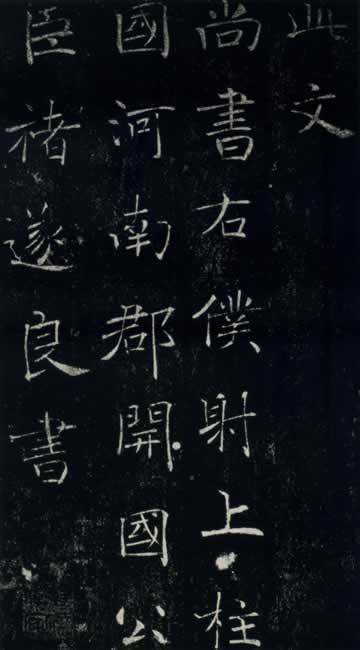 此文
尚書右僕射上柱
國河南郡開國公
臣褚遂良書